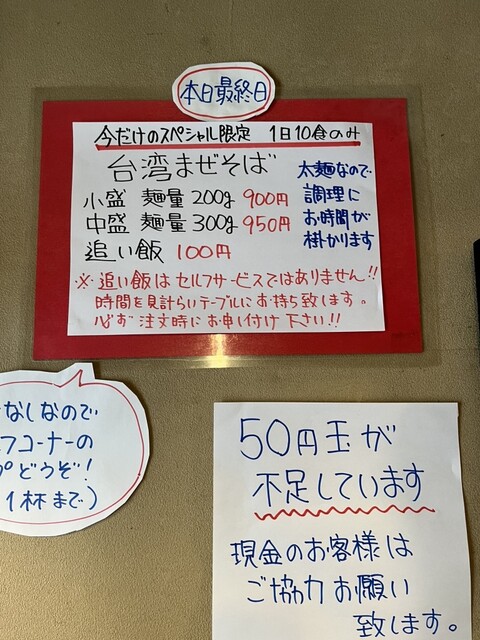 本日最終日
今だけのスペシャル限定 1日10食のみ
台湾まぜそば
小盛 麺量 200g 900円
中盛 麺量 300g 950円
追い飯 100円
太麺なので
調理に
お時間が
掛かります
※追い飯はセルフサービスではありません!!
時間を見計らいテーブルにお持ち致します。
必ず注文時にお申し付け下さい!!
なしなので
フコーナーの
プどうぞ!
1杯まで)
50円玉が
不足しています
現金のお客様は
ご協力お願い
致します。